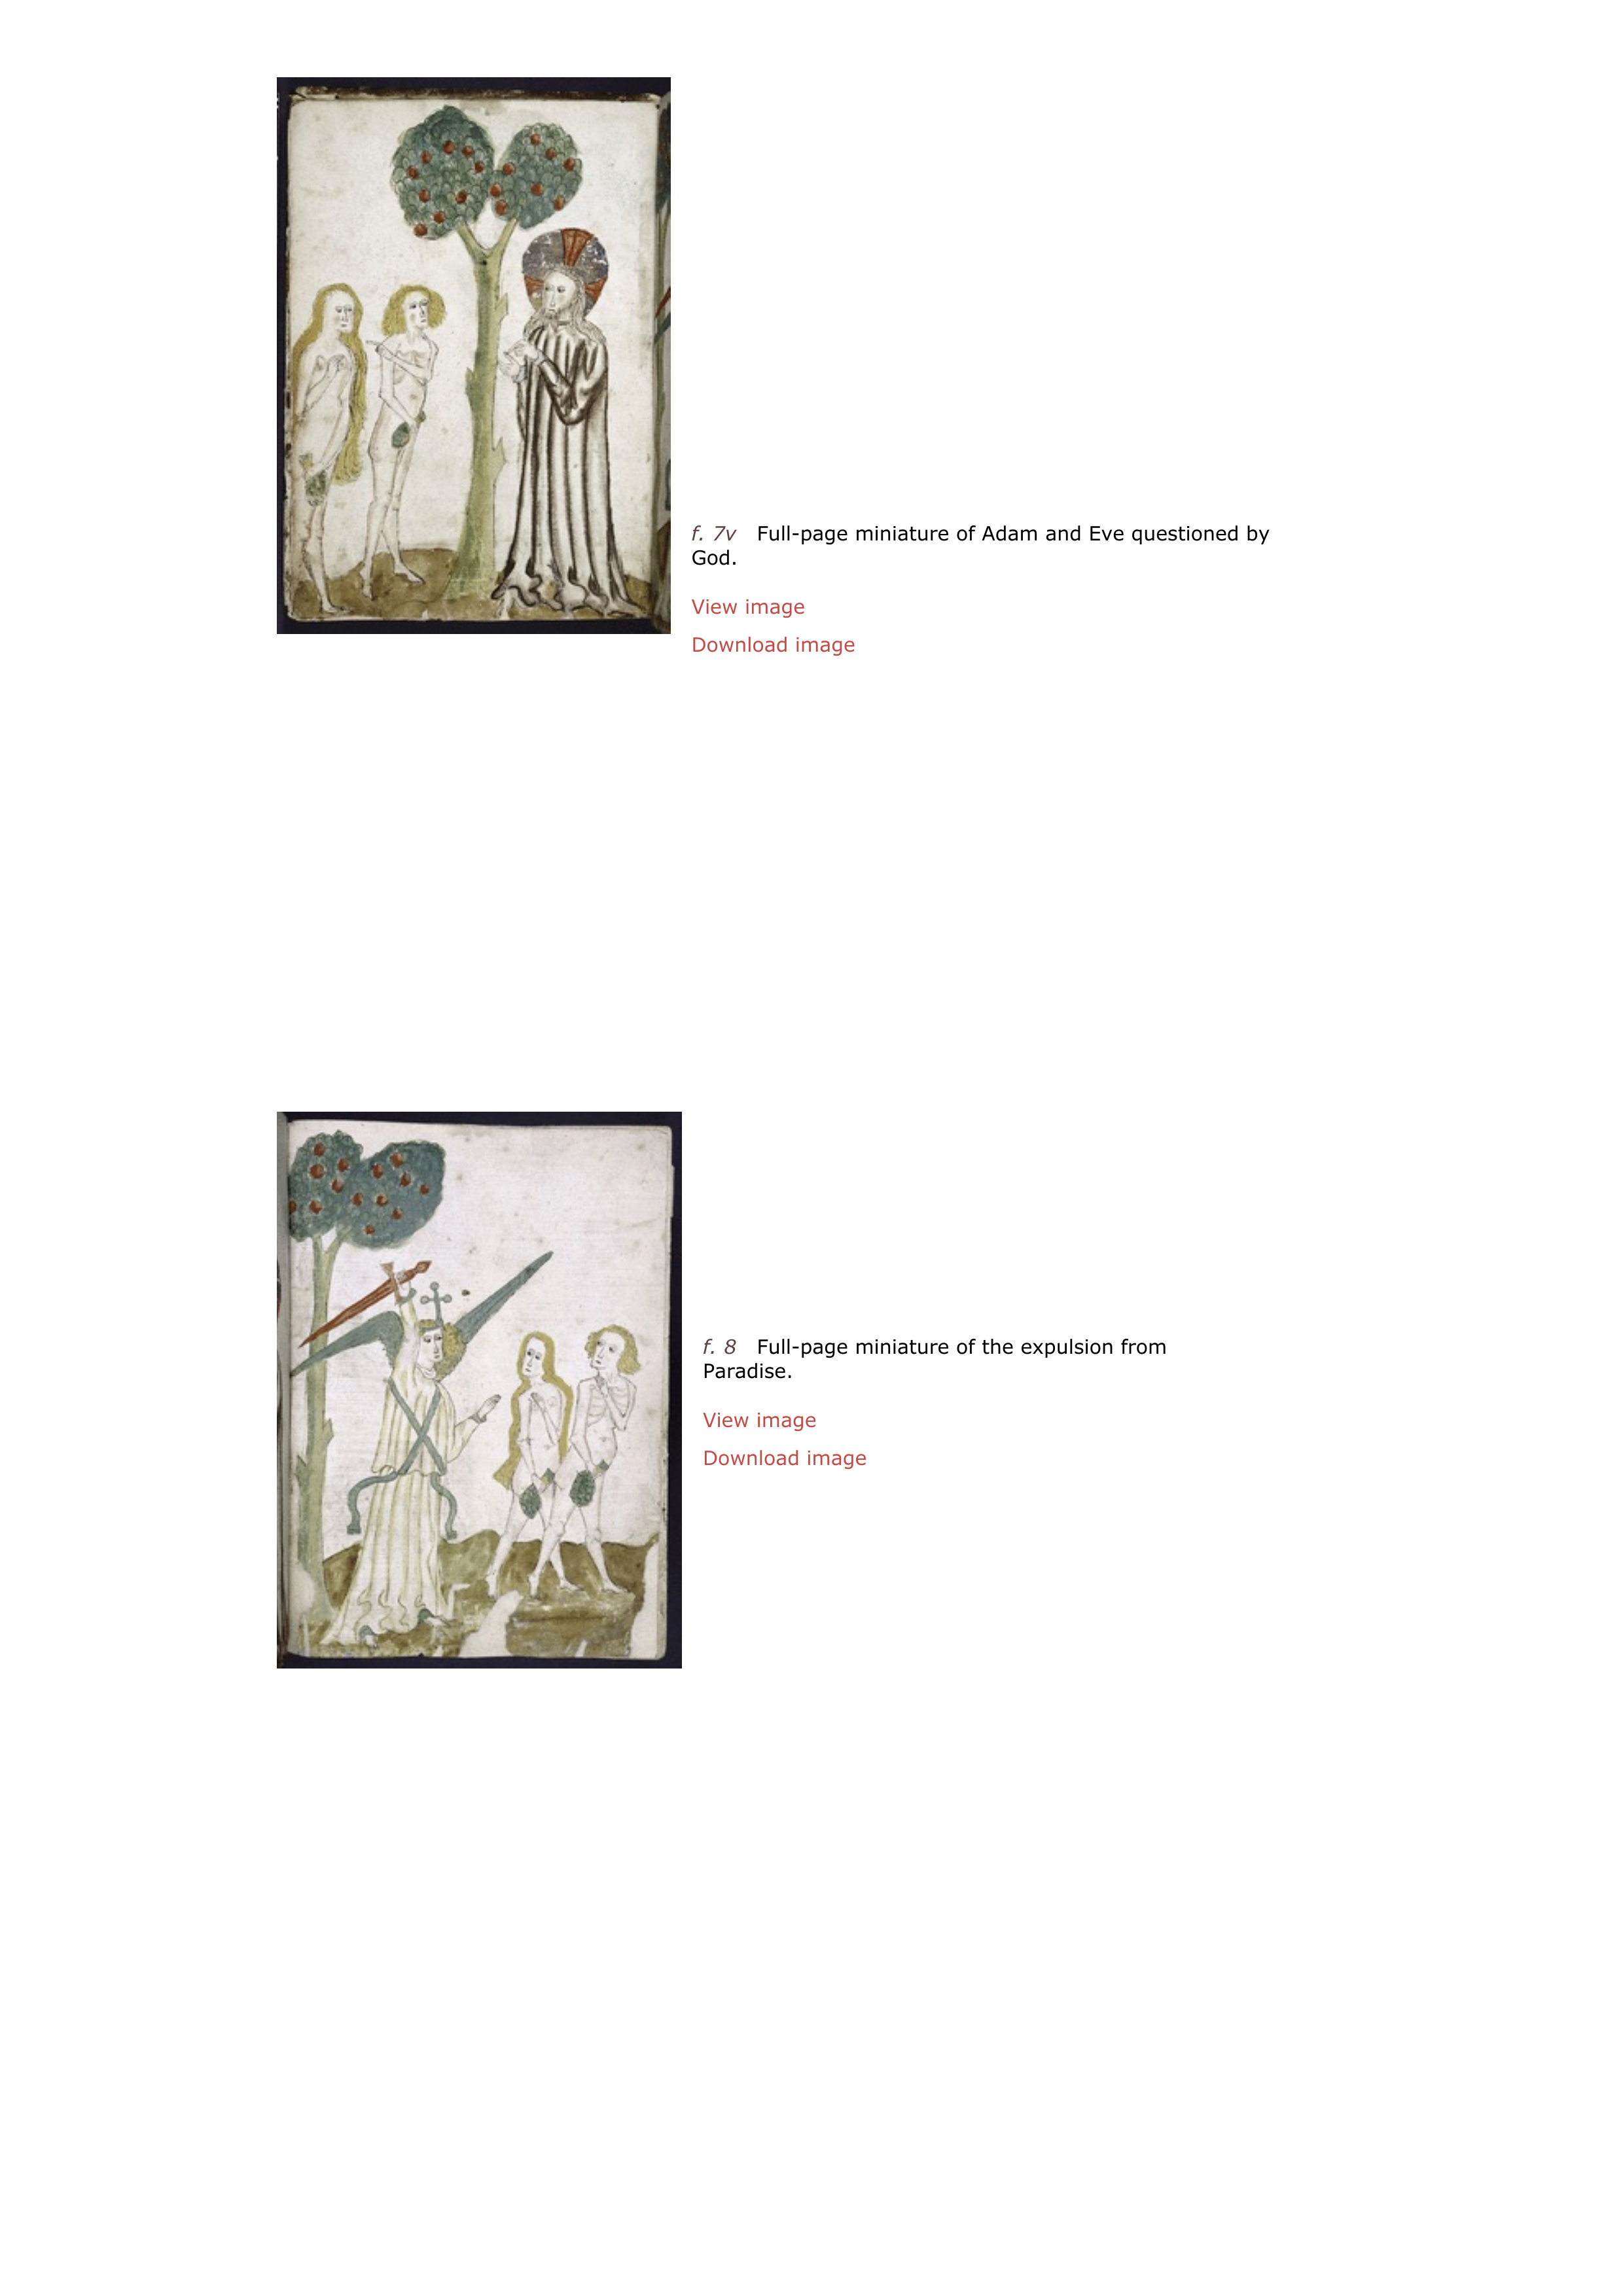 f. 7v Full-page miniature of Adam and Eve questioned by
God.
View image
Download image
f. 8 Full-page miniature of the expulsion from
Paradise.
View image
Download image